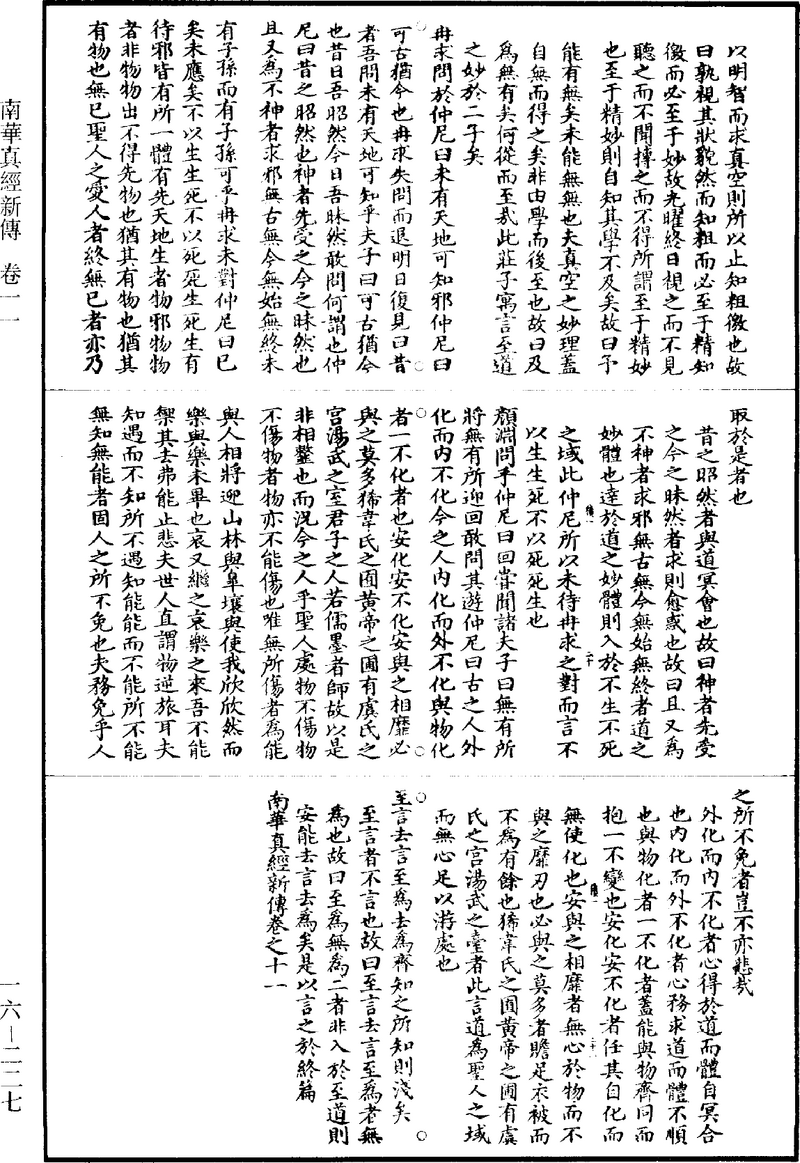 以明智而求真空則所以止知粗徼也故
曰孰視其狀貌然而知粗而必至于精知
徼而必至于妙故光曜終日視之而不見
聽之而不聞摶之而不得所謂至于精妙
也至于精妙則自知其學不及矣故曰予
能有無矣未能無無也夫真空之妙理蓋
自無而得之矣非由學而後至也故曰及
為無有矣何從而至哉此莊子寓言至道
之妙於二子矣
冉求問於仲尼曰未有天地可知邪仲尼曰
可古猶今也冉求失問而退明日復見曰昔
者吾問未有天地可知乎夫子曰可古猶今
也昔日吾昭然今日吾昧然敢問何謂也仲
尼曰昔之昭然也神者先受之今之昧然也
且又為不神者求邪無古無今無始無終未
有子孫而有子孫可乎冉求未對仲尼曰已
矣未應矣不以生生死不以死死生死生有
待邪皆有所一體有先天地生者物邪物物
者非物物出不得先物也猶其有物也猶其
有物也無已聖人之愛人者終無已者亦乃
取於是者也
昔之昭然者與道冥會也故曰神者先受
之今之昧然者求則愈惑也故曰且又為
不神者求邪無古無今無始無終者道之
妙體也達於道之妙體則入於不生不死
之域此仲尼所以未待冉求之對而言不
以生生死不以死死生也
顏淵問乎仲尼曰回嘗聞諸夫子曰無有所
將無有所迎回敢問其遊仲尼曰古之人外
化而內不化今之人內化而外不化與物化
者一不化者也安化安不化安與之相靡必
與之莫多狶韋氏之囿黃帝之圃有虞氏之
宮湯武之室君子之人若儒墨者師故以是
非相䪡也而況今之人乎聖人處物不傷物
不傷物者物亦不能傷也唯無所傷者為能
與人相將迎山林與皐壤與使我欣欣然而
樂與樂未畢也哀又繼之哀樂之來吾不能
禦其去弗能止悲夫世人直謂物逆旅耳夫
知遇而不知所不遇知能能而不能所不能
無知無能者固人之所不免也夫務免乎人
之所不免者豈不亦悲哉
外化而內不化者心得於道而體自冥合
也內化而外不化者心務求道而體不順
也與物化者一不化者蓋能與物齊同而
抱一不變也安化安不化者任其自化而
無使化也安與之相靡者無心於物而不
與之靡刃也必與之莫多者贍足衣被而
不為有餘也狶韋氏之囿黃帝之圃有虞
氏之宮湯武之臺者此言道為聖人之域
而無心足以游處也
至言去言至為去為齊知之所知則淺矣
至言者不言也故曰至言去言至為者無
為也故曰至為無為二者非入於至道則
安能去言去為矣是以言之於終篇
南華真經新傳卷之十一
南華真經新傳　卷一一
一六—二二七